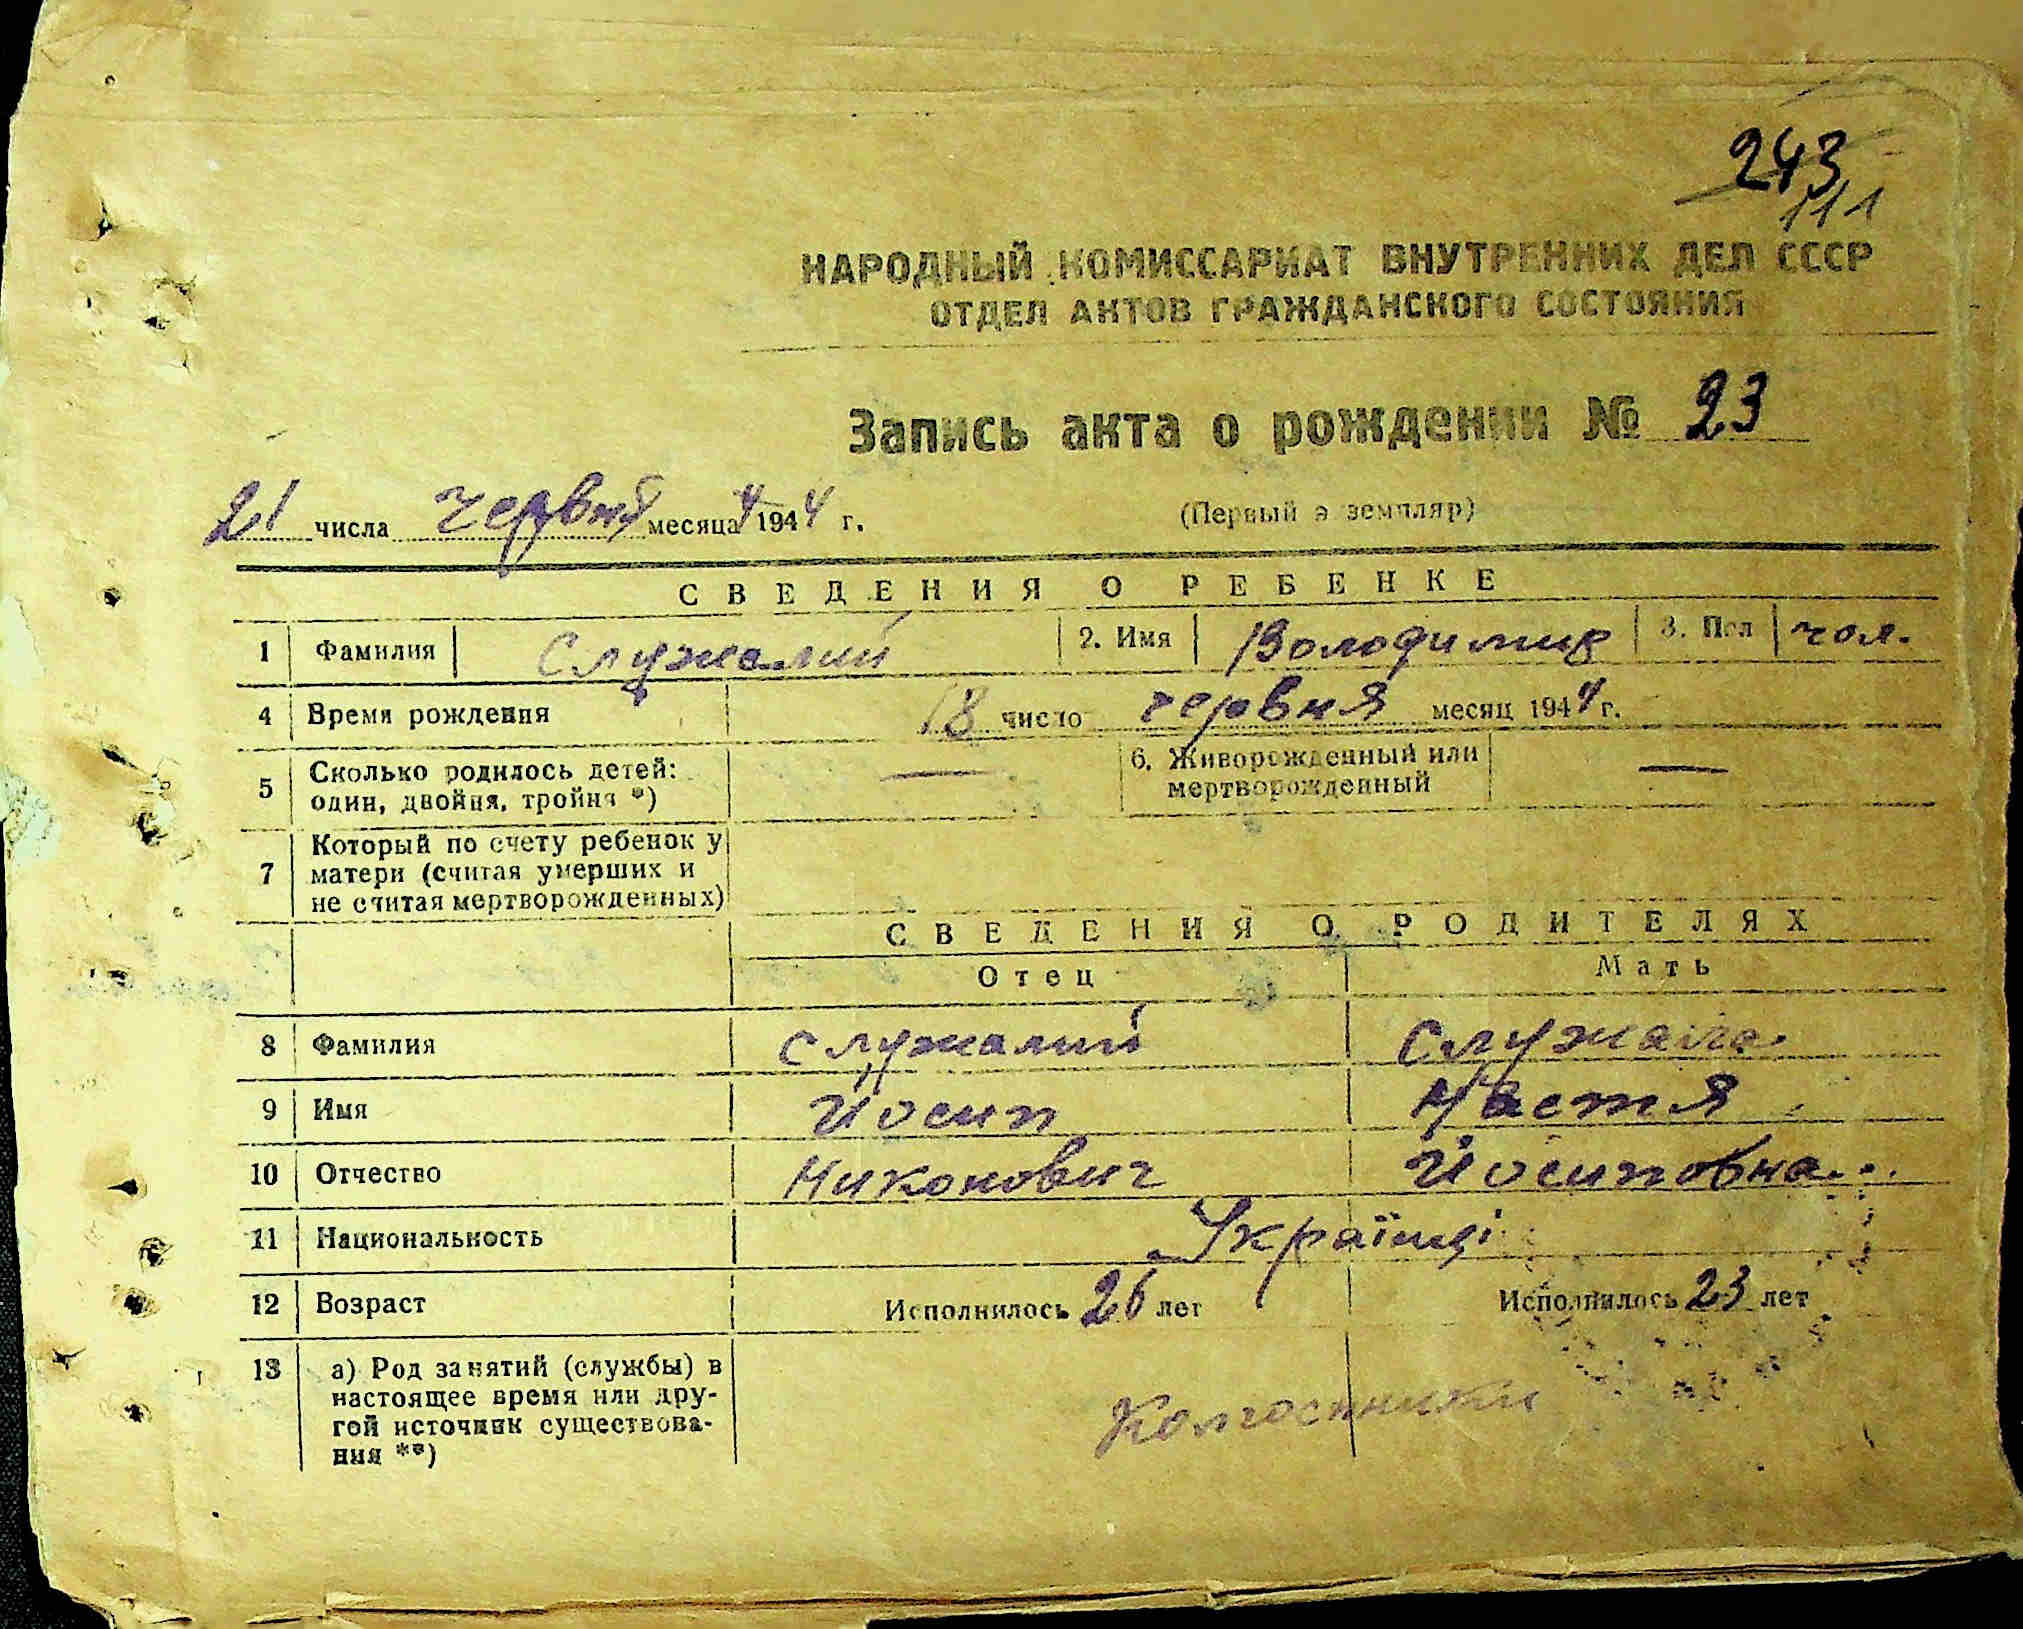 243
111
НАРОДНЫЙ КОМИССАРИАТ ВНУТРЕННИХ ДЕЛ СССР
ОТДЕЛ АКТОВ ГРАЖДАНСКОГО СОСТОЯНИЯ
Запись акта о рождении № 23
21 числа червня месяца 1944 г. (Первый экземпляр)
СВЕДЕНИЯ О РЕБЕНКЕ
1 Фамилия Служалий 2. Имя Володимир 3. Пол чол.
4 Время рождения 18 число червня месяц 1944 г.
5 Сколько родилось детей: один, двойня, тройня *) — 6. Живорожденный или мертворожденный —
7 Который по счету ребенок у матери (считая умерших и не считая мертворожденных)
СВЕДЕНИЯ О РОДИТЕЛЯХ
Отец Мать
8 Фамилия Служалий Служала
9 Имя Йосип Настя
10 Отчество Никонович Йосиповна
11 Национальность Українці
12 Возраст Исполнилось 26 лет Исполнилось 23 лет
13 а) Род занятий (службы) в
настоящее время или дру-
гой источник существова-
ния **) Колгоспники